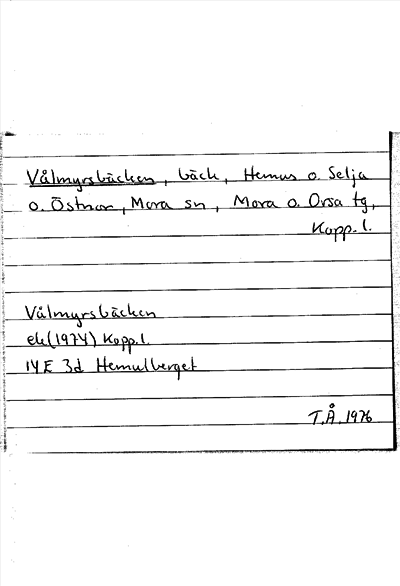 Vålmyrsbäcken, bäck, Hemus o. Selja
o. Östnor, Mora sn, Mora o. Orsa tg,
Kopp. l.
Vålmyrsbäcken
ek (1974) Kopp. l.
14E 3d Hemulberget
T.Å. 1976